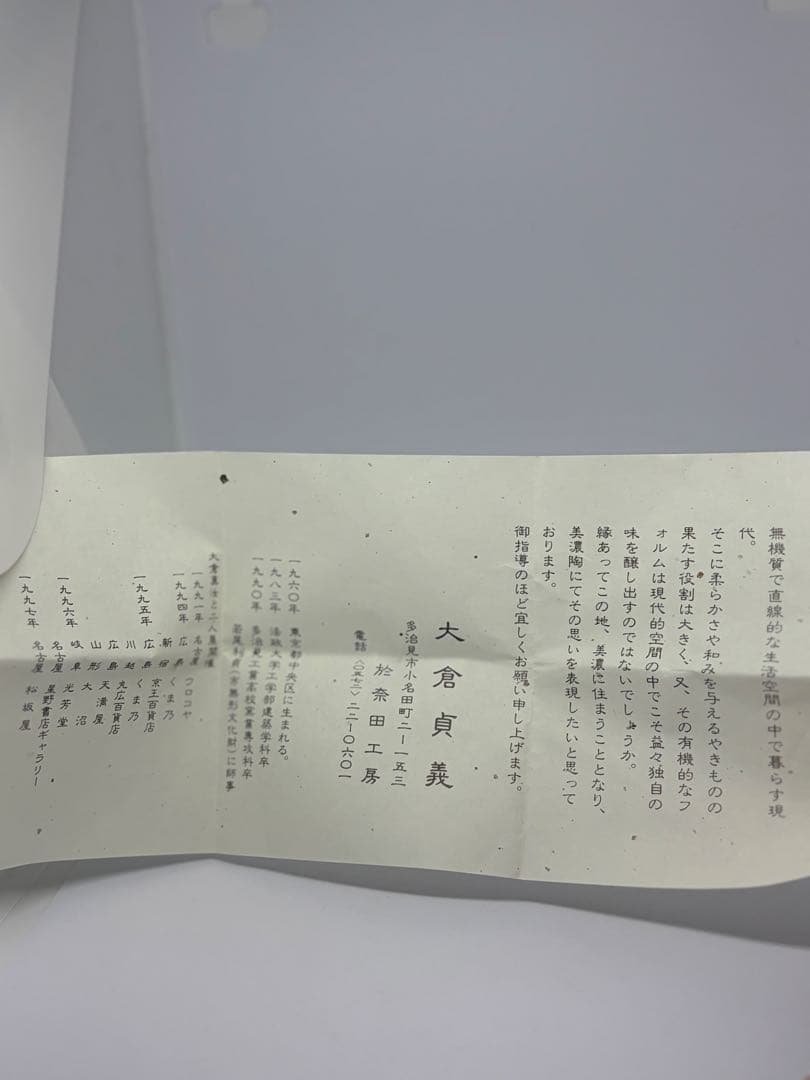 無機質で直線的な生活空間の中で暮らす現
代。
そこに柔らかさや和みを与えるやきものの
果たす役割は大きく、又、その有機的なフ
ォルムは現代的空間の中でこそ益々独自の
味を醸し出すのではないでしょうか。
縁あってこの地、美濃に住まうこととなり、
美濃陶にてその思いを表現したいと思って
おります。
御指導のほど宜しくお願い申し上げます。
大倉貞義
多治見市小名田町二ー一五三
於奈田工房
電話〈〇五七二〉二二ー〇六〇一
一九六〇年 東京都中央区に生まれる。
一九八三年 法政大学工学部建築学科卒
一九九〇年 多治見工業高校窯業専攻科卒
若尾利貞(市無形文化財)に師事
大倉 と二人展開催
一九九一年 名古屋 フロコヤ
一九九四年 広島 くま乃
新宿 京王百貨店
一九九五年 広島 くま乃
川越 丸広百貨店
広島 天満屋
山形 大沼
岐阜 光芳堂
一九九六年 名古屋 星野書店ギャラリー
一九九七年 名古屋 松坂屋